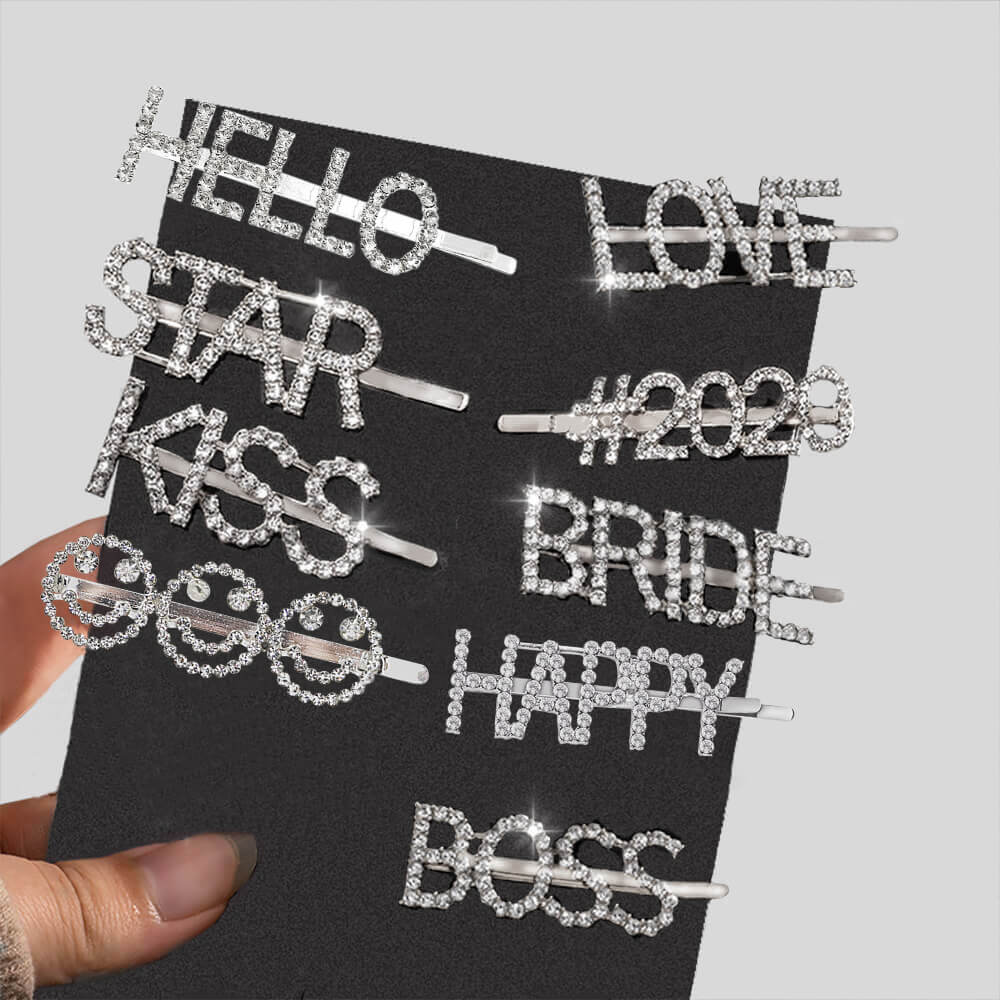 HELLO
STAR
KISS
LOVE
#2028
BRIDE
HAPPY
BOSS